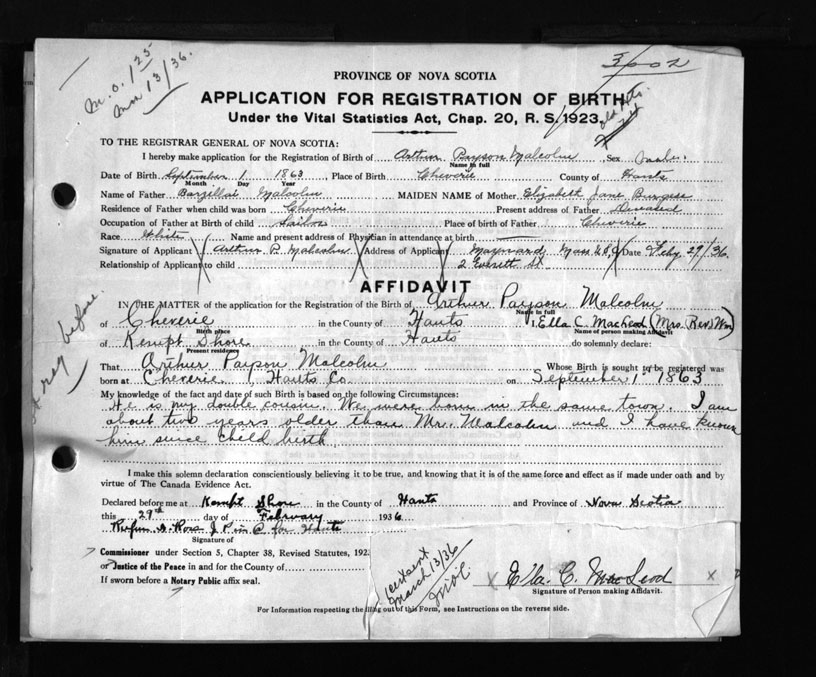 M.O. 1 25
Mar 13/36.
3002
PROVINCE OF NOVA SCOTIA
APPLICATION FOR REGISTRATION OF BIRTH
Under the Vital Statistics Act, Chap. 20, R. S. 1923.
TO THE REGISTRAR GENERAL OF NOVA SCOTIA:
I hereby make application for the Registration of Birth of Arthur Payson Malcolm Sex male
Name in full
Date of Birth September 1 1863 Place of Birth Cheverie County of Hants
Month Day Year
Name of Father Barzillai Malcolm MAIDEN NAME of Mother Elizabeth Jane Burgess
Residence of Father when child was born Cheverie Present address of Father Deceased
Occupation of Father at Birth of child Sailor Place of birth of Father Cheverie
Race White Name and present address of Physician in attendance at birth
Signature of Applicant Arthur P. Malcolm Address of Applicant Maynard Mass U.S.A. Date Feby 27/36.
Relationship of Applicant to child 2 Everett St.
AFFIDAVIT
IN THE MATTER of the application for the Registration of Birth of Arthur Payson Malcolm
Name in full
of Cheverie in the County of Hants I, Ella C. MacLeod (Mrs. Rev. Wm)
Birth place Name of person making Affidavit
of Kempt Shore in the County of Hants do solemnly declare:
Present residence
That Arthur Payson Malcolm Whose Birth is sought to be registered was
born at Cheverie Hants Co on September 1 1863
My knowledge of the fact and date of such Birth is based on the following Circumstances:
He is my double cousin. We were born in the same town. I am
about two years older than Mr. Malcolm and I have known
him since child birth
I make this solemn declaration conscientiously believing it to be true, and knowing that it is of the same force and effect as if made under oath and by
virtue of The Canada Evidence Act.
Declared before me at Kempt Shore in the County of Hants and Province of Nova Scotia
this 29th day of February 1936
J P in & for Hants
Signature of
Commissioner under Section 5, Chapter 38, Revised Statutes, 192.
or Justice of the Peace in and for the County of
If sworn before a Notary Public affix seal.
cert sent
March 13/36
Ella C. MacLeod
Signature of Person making Affidavit.
For Information respecting the filing out of this Form, see Instructions on the reverse side.